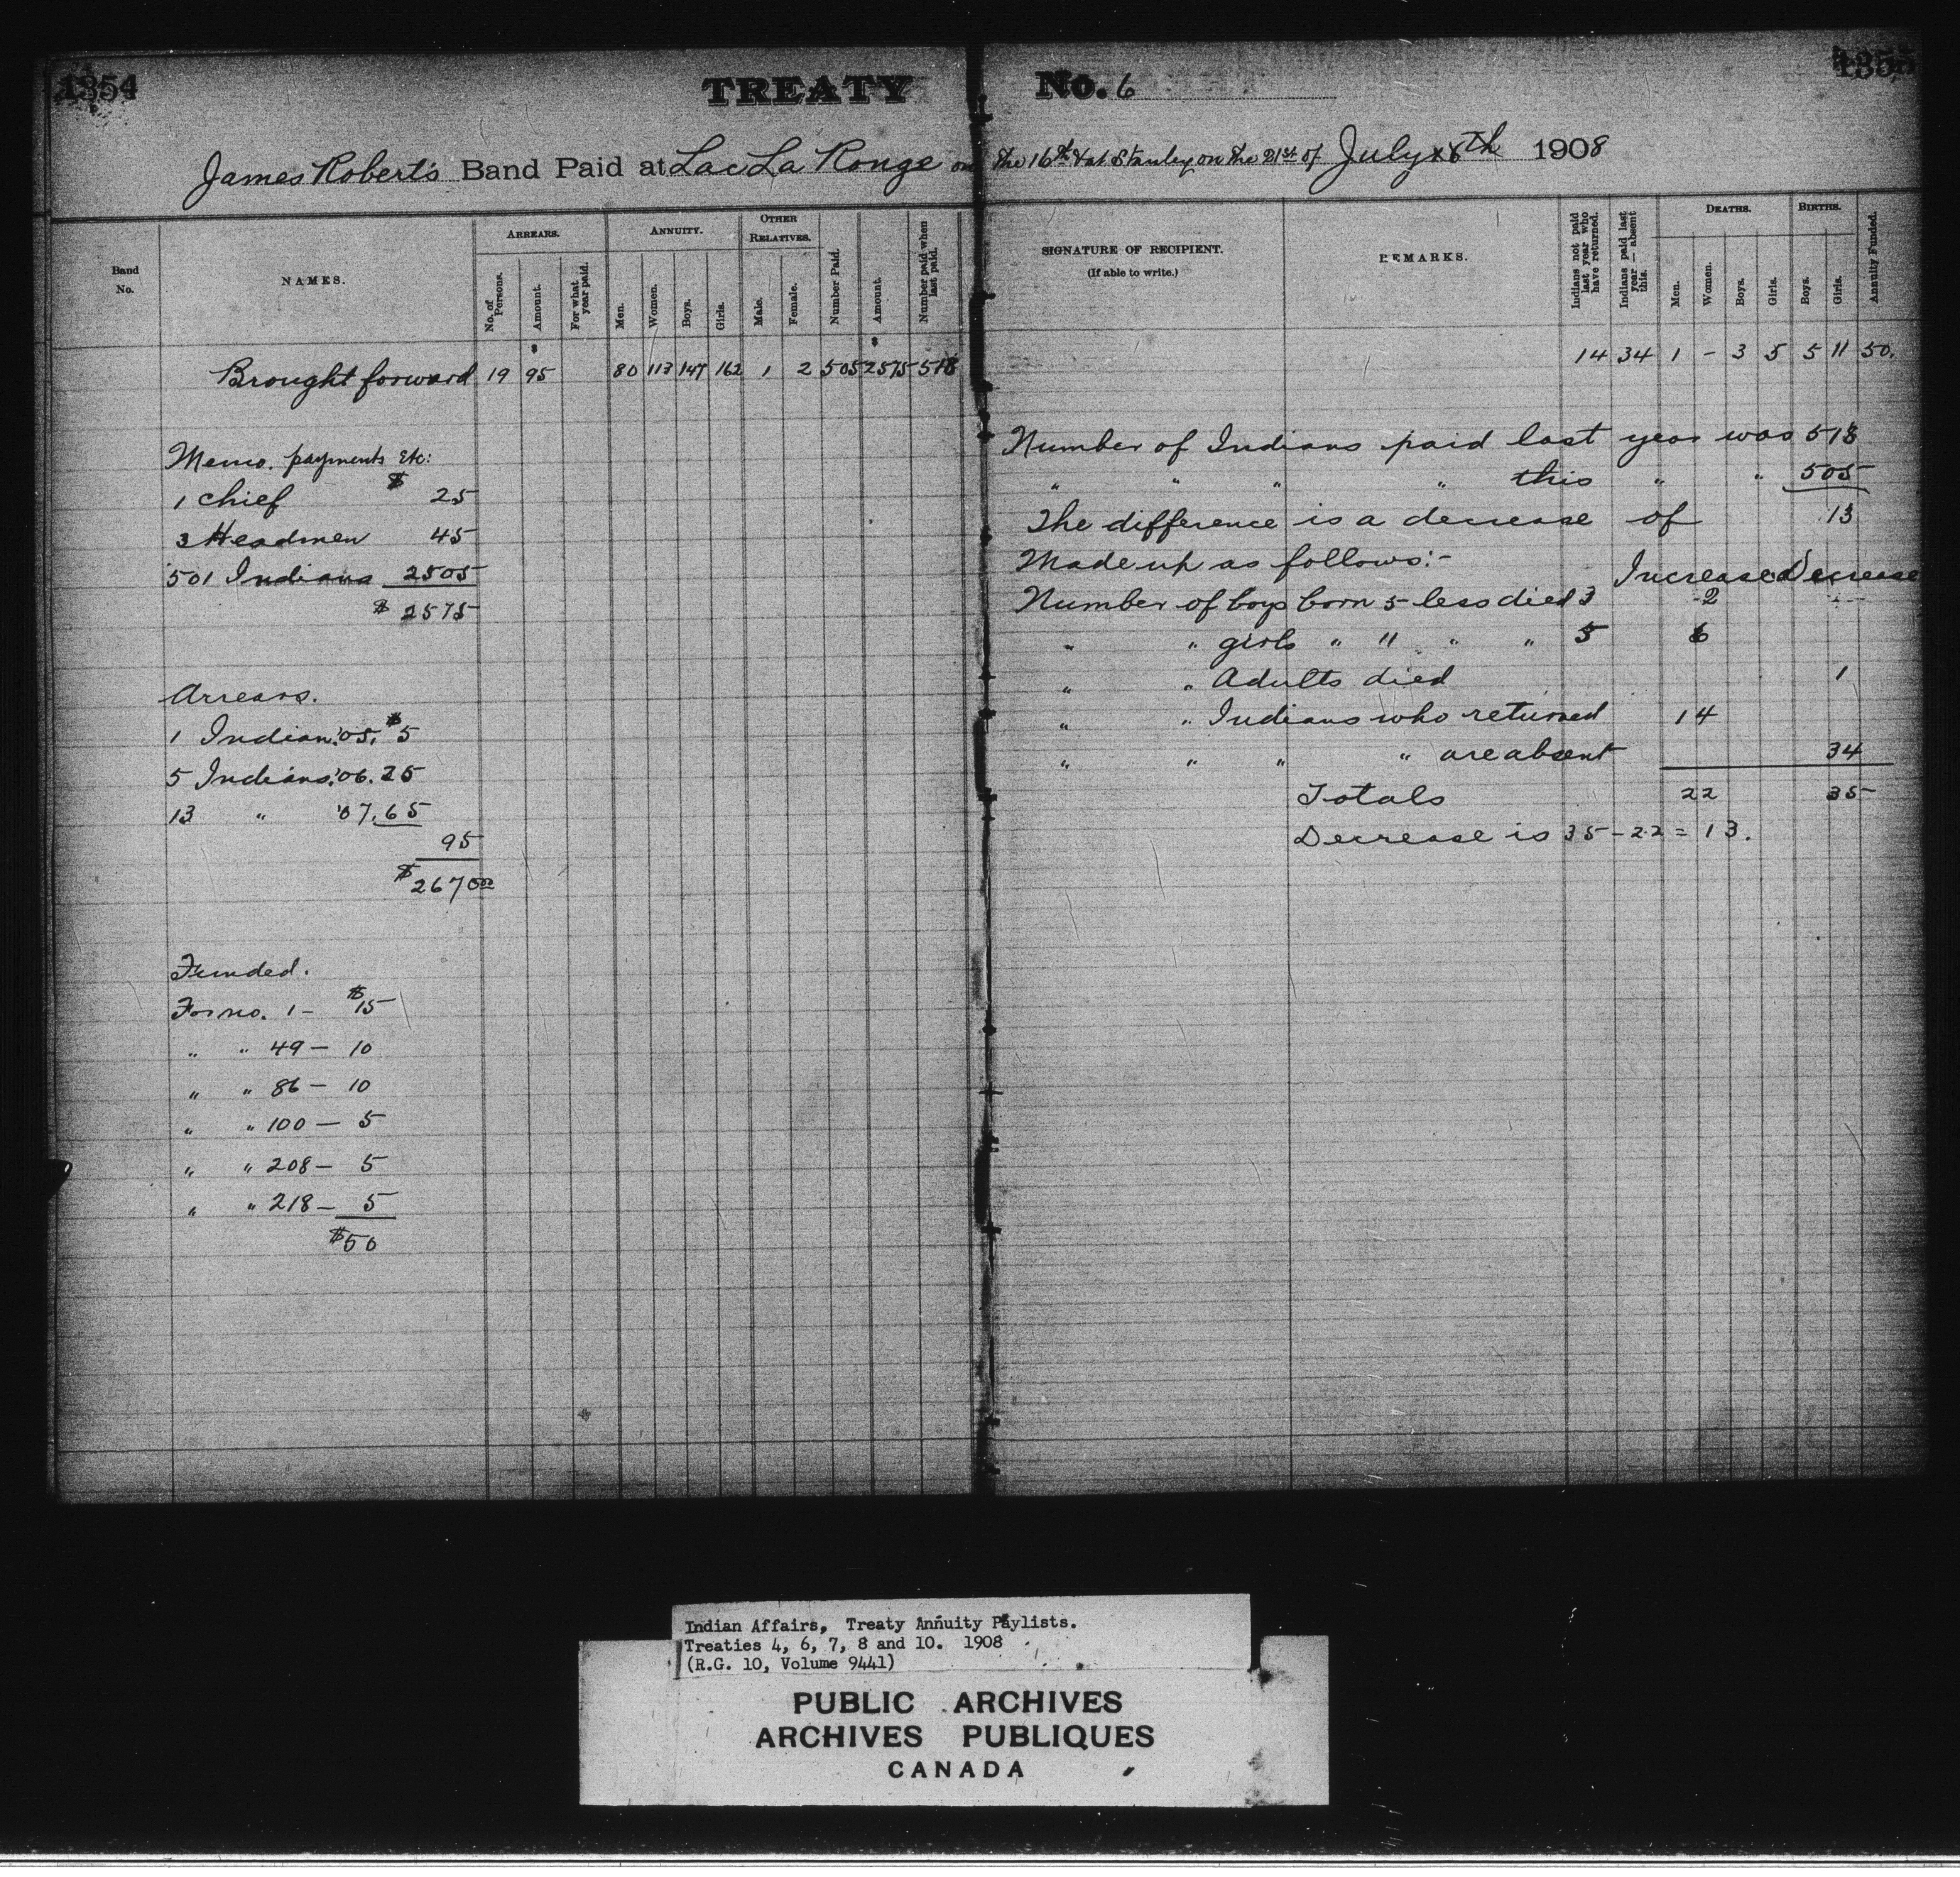 1354
TREATY No. 6
1355
James Robert's Band Paid at Lac La Ronge on the 16th & at Stanley on the 21st of July 1908
Band No.
NAMES.
ARREARS.
No. of Persons.
Amount.
For what year paid.
ANNUITY.
Men.
Women.
Boys.
Girls.
OTHER RELATIVES.
Male.
Female.
Number Paid.
Amount.
Number paid when last paid.
SIGNATURE OF RECIPIENT.
(If able to write.)
REMARKS.
Indians not paid last year who have returned.
Indians paid last year — absent this.
DEATHS.
Men.
Women.
Boys.
Girls.
BIRTHS.
Boys.
Girls.
Annuity Funded.
$ $
Brought forward 19 95 80 113 147 162 1 2 505 2575 518 14 34 1 - 3 5 5 11 50.
Memo. payments etc:
1 Chief $ 25
3 Headmen 45
501 Indians 2505
$ 2575
Arrears.
1 Indian '05, $5
5 Indians '06. 25
13 " '07. 65
95
$2670 00
Funded.
For no. 1 - $15
" " 49 - 10
" " 86 - 10
" " 100 - 5
" " 208 - 5
" " 218 - 5
$50
Number of Indians paid last year was 518
" " " " this " " 505
The difference is a decrease of 13
Made up as follows:-
Increase Decrease
Number of boys born 5 less died 3 2
" " girls " 11 " " 5 6
" " Adults died 1
" " Indians who returned 14
" " " " are absent 34
Totals 22 35
Decrease is 35 - 22 = 13.
Indian Affairs, Treaty Annuity Paylists.
Treaties 4, 6, 7, 8 and 10. 1908
(R.G. 10, Volume 9441)
PUBLIC ARCHIVES
ARCHIVES PUBLIQUES
CANADA